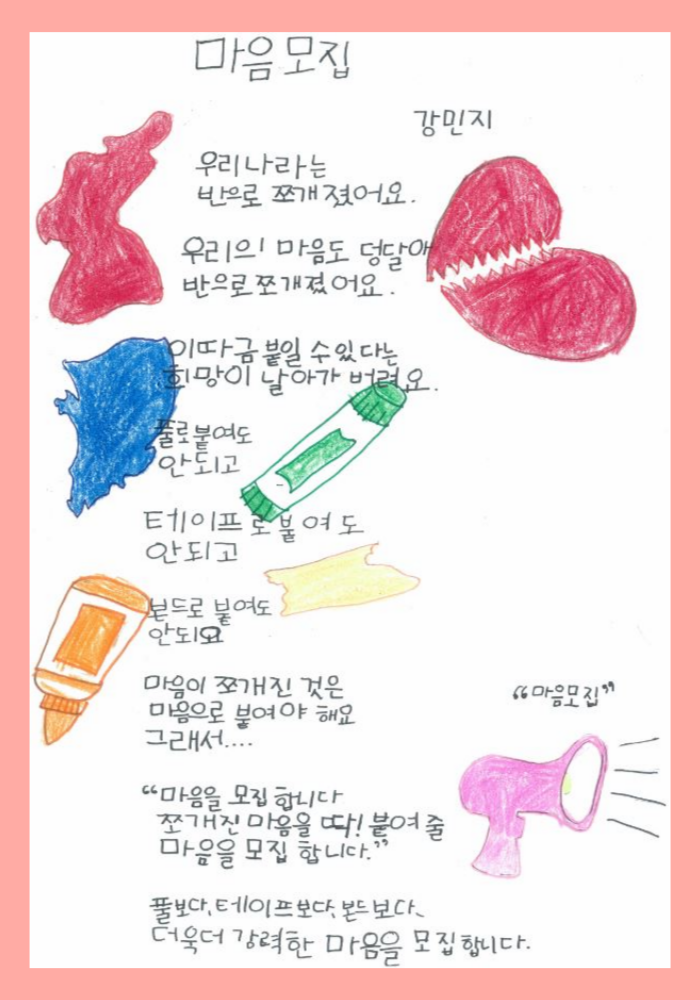 마음모집
강민지
우리나라는
반으로 쪼개졌어요.
우리의 마음도 덩달아
반으로 쪼개졌어요.
이따금 붙일 수 있다는
희망이 날아가 버려요.
풀로 붙여도
안되고
테이프로 붙여도
안되고
본드로 붙여도
안되요
마음이 쪼개진 것은
마음으로 붙여야 해요
그래서....
“마음모집”
“마음을 모집 합니다
쪼개진 마음을 딱! 붙여 줄
마음을 모집 합니다.”
풀보다, 테이프보다, 본드보다,
더욱더 강력한 마음을 모집합니다.